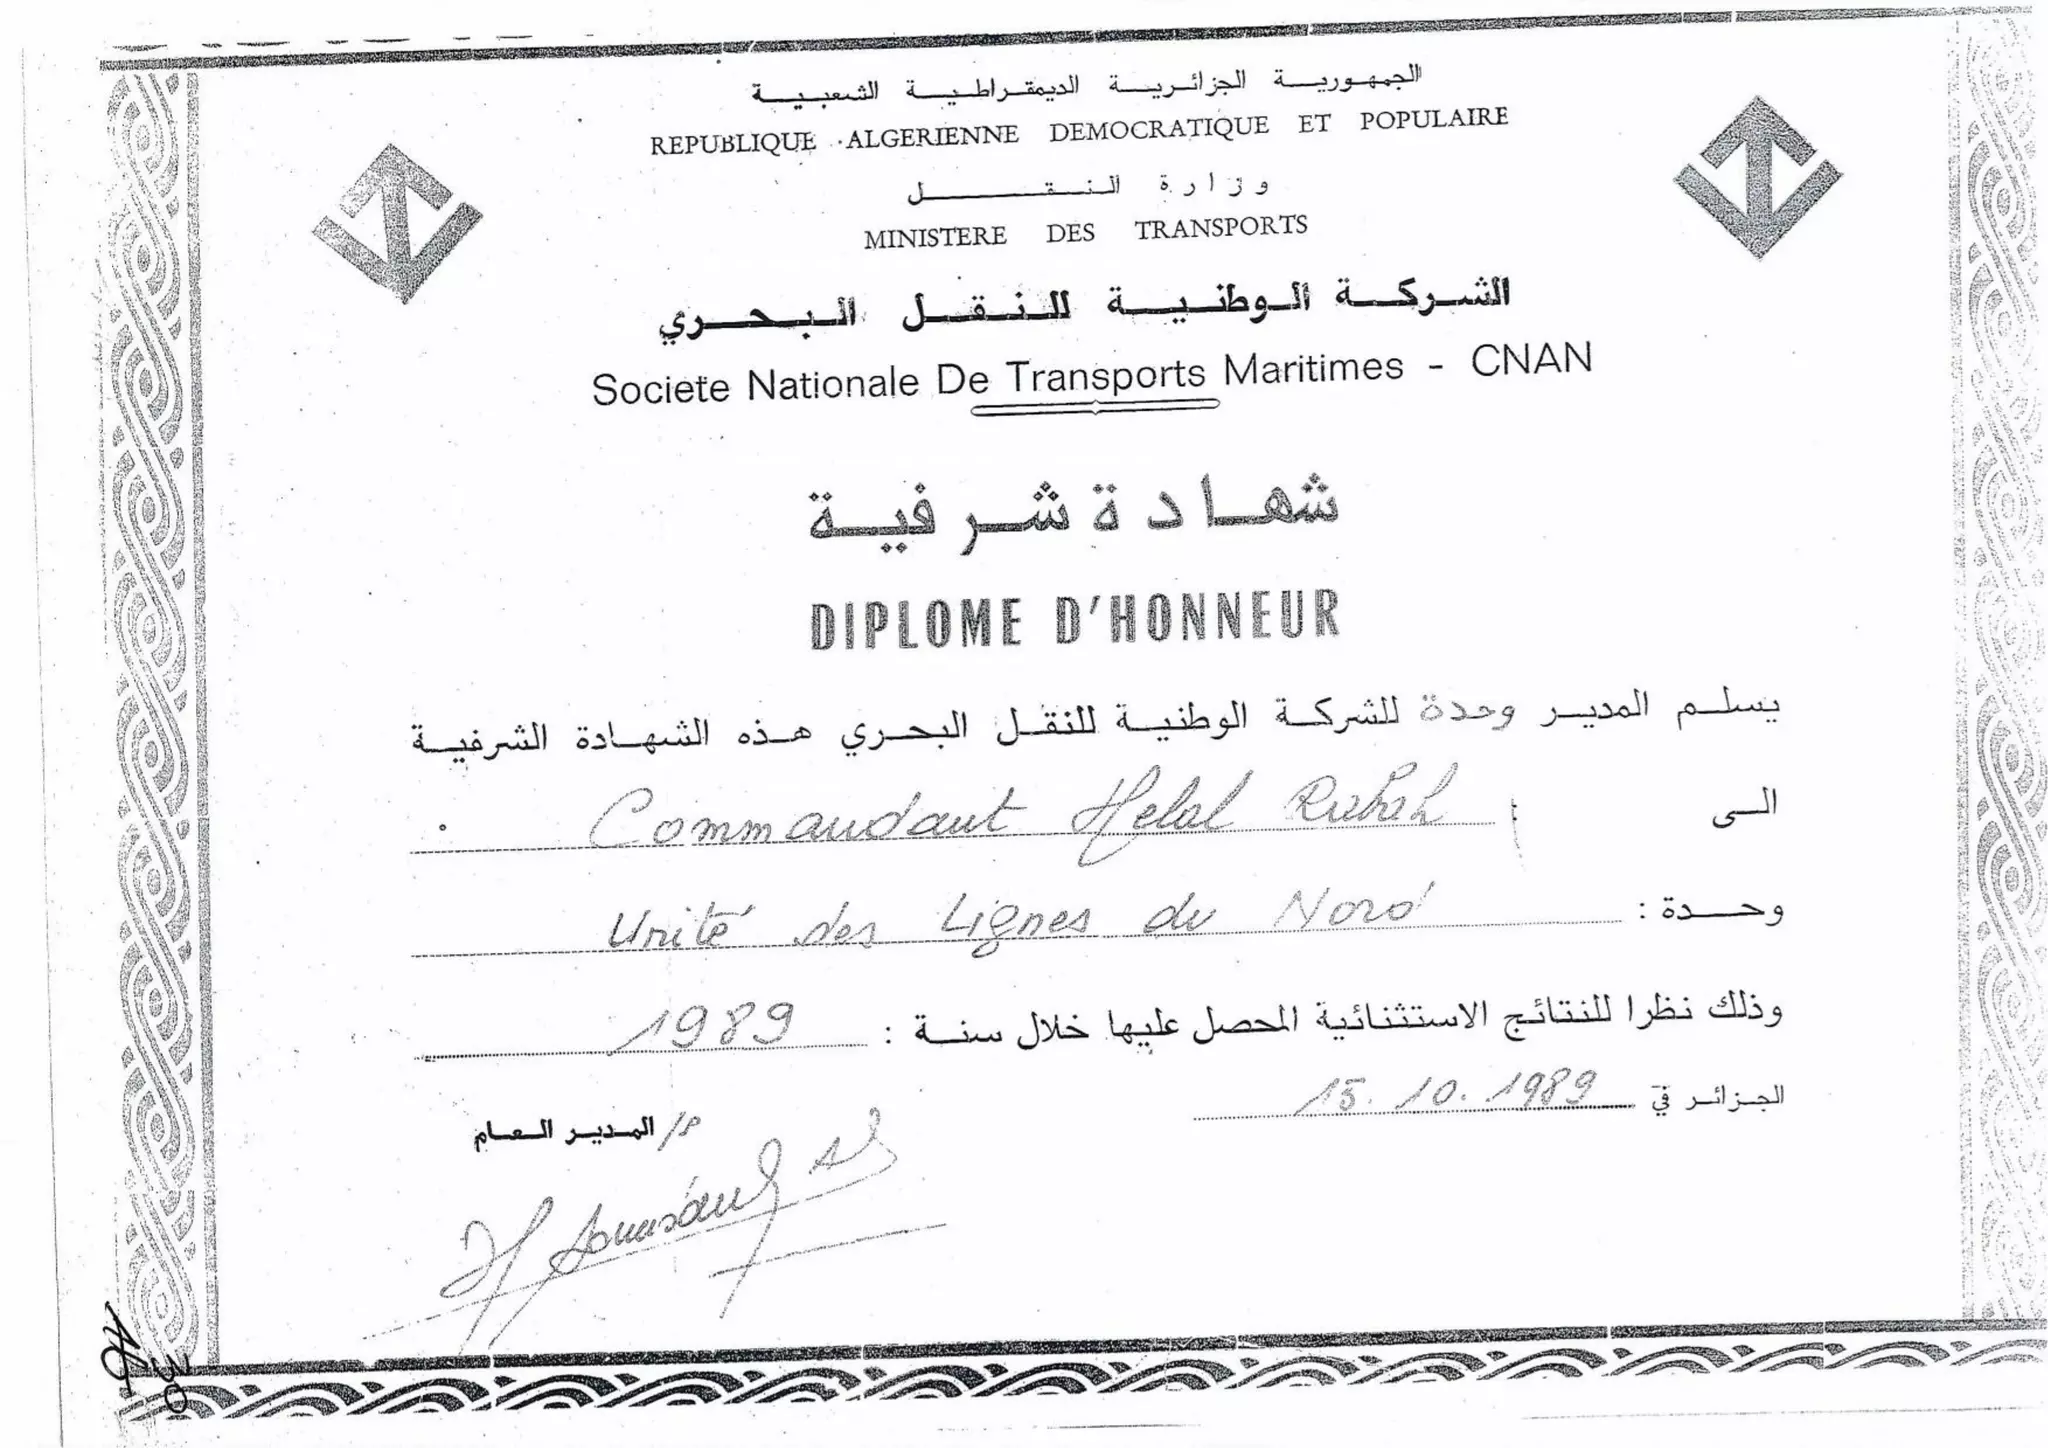 الجمهورية الجزائرية الديمقراطية الشعبية
REPUBLIQUE ALGERIENNE DEMOCRATIQUE ET POPULAIRE
وزارة النقل
MINISTERE DES TRANSPORTS
الشركة الوطنية للنقل البحري
Societe Nationale De Transports Maritimes - CNAN
شهادة شرفية
DIPLOME D'HONNEUR
يسلم المدير وحدة للشركة الوطنية للنقل البحري هذه الشهادة الشرفية
الى Commandant Helal Rabah
وحدة : Unité des Lignes du Nord
وذلك نظرا للنتائج الاستثنائية المحصل عليها خلال سنة : 1989
الجزائر في 15.10.1989
م/ المدير العام
30